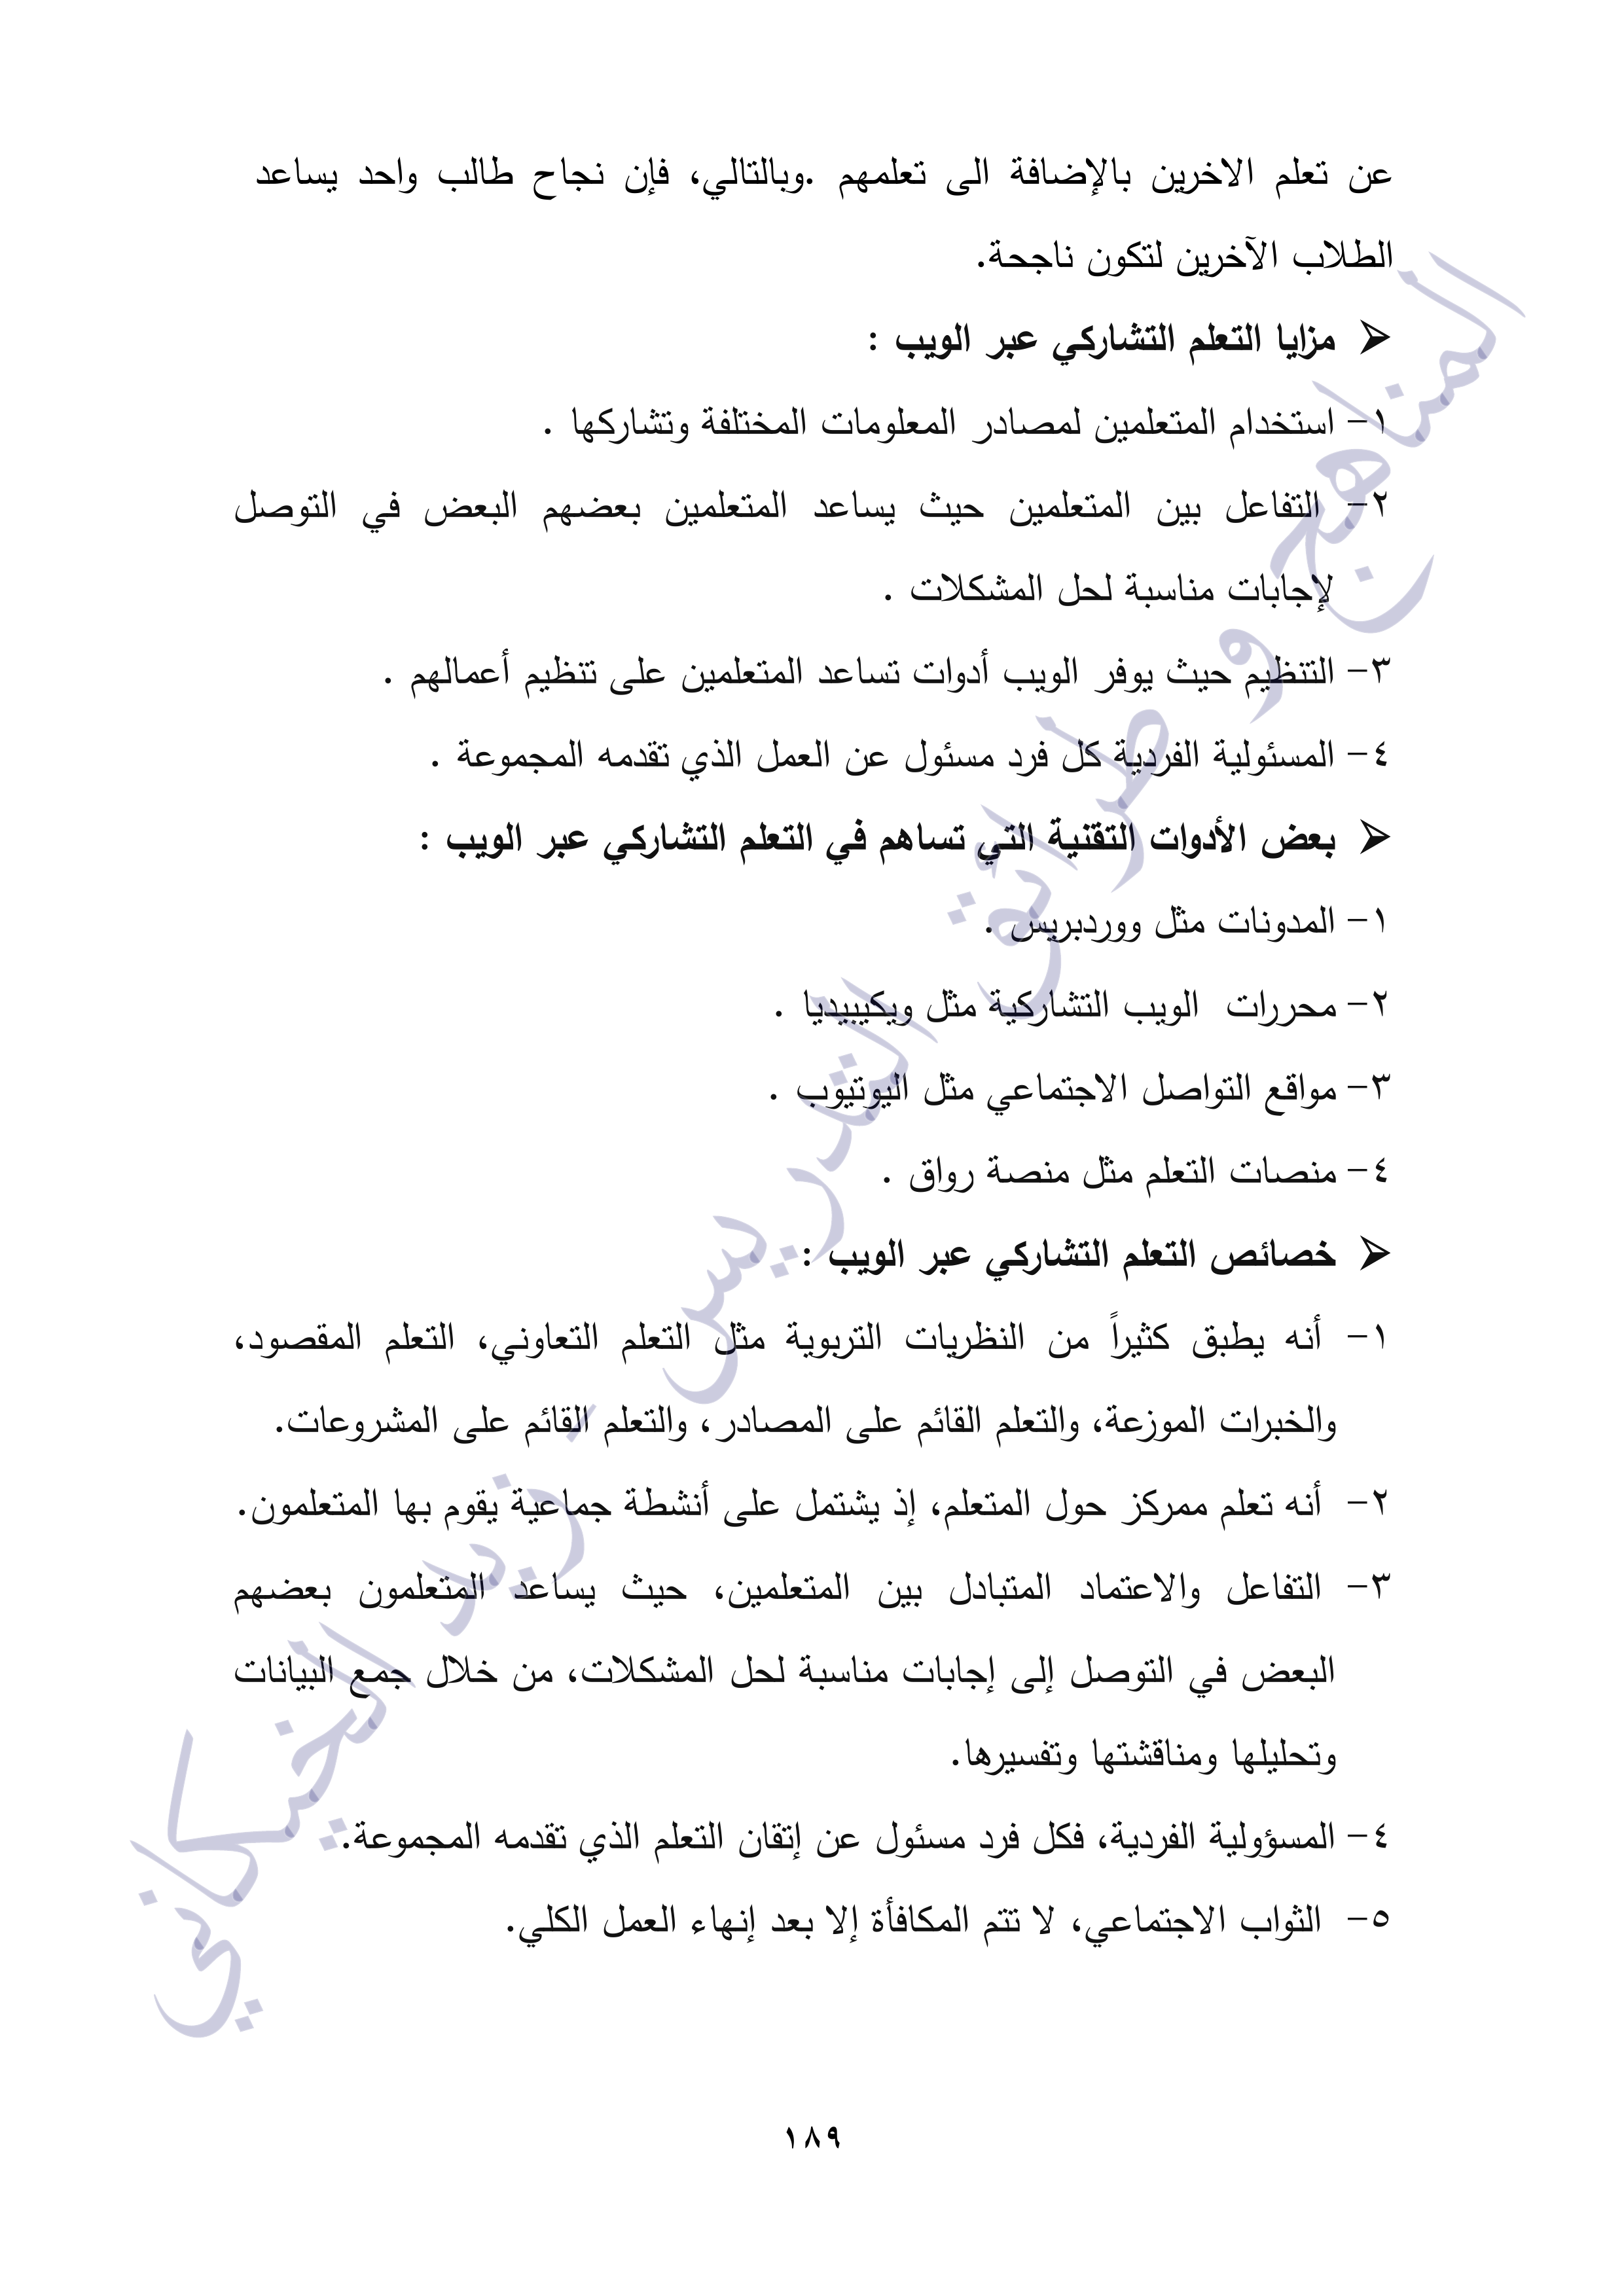 عن تعلم الاخرين بالإضافة الى تعلمهم .وبالتالي، فإن نجاح طالب واحد يساعد
الطلاب الآخرين لتكون ناجحة.
➢ مزايا التعلم التشاركي عبر الويب :
١- استخدام المتعلمين لمصادر المعلومات المختلفة وتشاركها .
٢- التفاعل بين المتعلمين حيث يساعد المتعلمين بعضهم البعض في التوصل
لإجابات مناسبة لحل المشكلات .
٣- التنظيم حيث يوفر الويب أدوات تساعد المتعلمين على تنظيم أعمالهم .
٤- المسئولية الفردية كل فرد مسئول عن العمل الذي تقدمه المجموعة .
➢ بعض الأدوات التقنية التي تساهم في التعلم التشاركي عبر الويب :
١- المدونات مثل ووردبريس .
٢- محررات الويب التشاركية مثل ويكيبيديا .
٣- مواقع التواصل الاجتماعي مثل اليوتيوب .
٤- منصات التعلم مثل منصة رواق .
➢ خصائص التعلم التشاركي عبر الويب :
١- أنه يطبق كثيراً من النظريات التربوية مثل التعلم التعاوني، التعلم المقصود،
والخبرات الموزعة، والتعلم القائم على المصادر، والتعلم القائم على المشروعات.
٢- أنه تعلم ممركز حول المتعلم، إذ يشتمل على أنشطة جماعية يقوم بها المتعلمون.
٣- التفاعل والاعتماد المتبادل بين المتعلمين، حيث يساعد المتعلمون بعضهم
البعض في التوصل إلى إجابات مناسبة لحل المشكلات، من خلال جمع البيانات
وتحليلها ومناقشتها وتفسيرها.
٤- المسؤولية الفردية، فكل فرد مسئول عن إتقان التعلم الذي تقدمه المجموعة.
٥- الثواب الاجتماعي، لا تتم المكافأة إلا بعد إنهاء العمل الكلي.
١٨٩
المناهج و طرائق التدريس - زيد الخيكاني